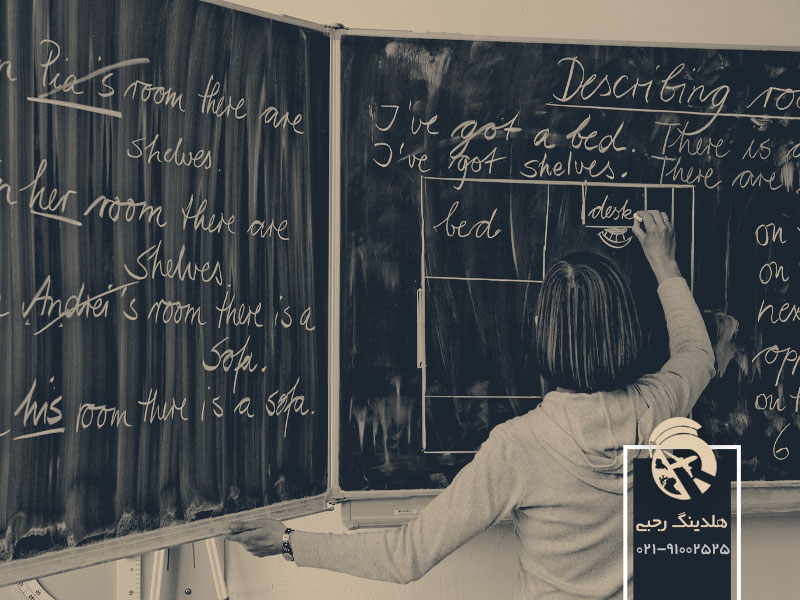 n Pia's room there are
shelves.
n her room there are
shelves.
Andrei's room there is a
Sofa.
his room there is a sofa.
Describing roo
I've got a bed. There is a
I've got shelves. There are
bed
desk
on
on
nex
opp
on t
6
هلدینگ رجبی
۰۲۱-۹۱۰۰۲۵۲۵